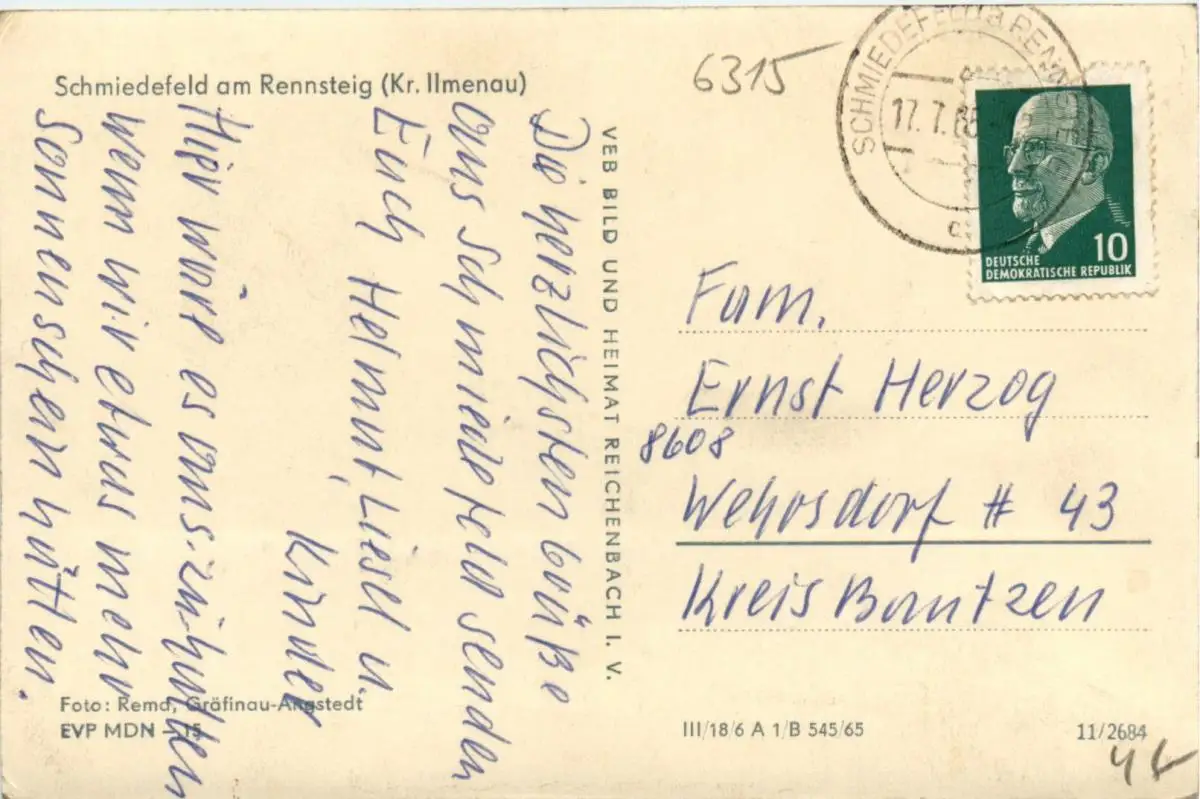 Schmiedefeld am Rennsteig (Kr. Ilmenau)
Die herzlichsten Grüße
aus Schmiedefeld senden
Euch Helmut, Liesel u.
Kinder
Hier wäre es auszuhalten
wenn wir etwas mehr
Sonnenschein hätten.
Foto: Remd, Gräfinau-Angstedt
EVP MDN -,15
VEB BILD UND HEIMAT REICHENBACH I. V.
6315
SCHMIEDEFELD
17.7.65
10
DEUTSCHE
DEMOKRATISCHE REPUBLIK
Fam.
Ernst Herzog
8608
Wehrsdorf # 43
Kreis Bautzen
III/18/6 A 1/B 545/65
11/2684